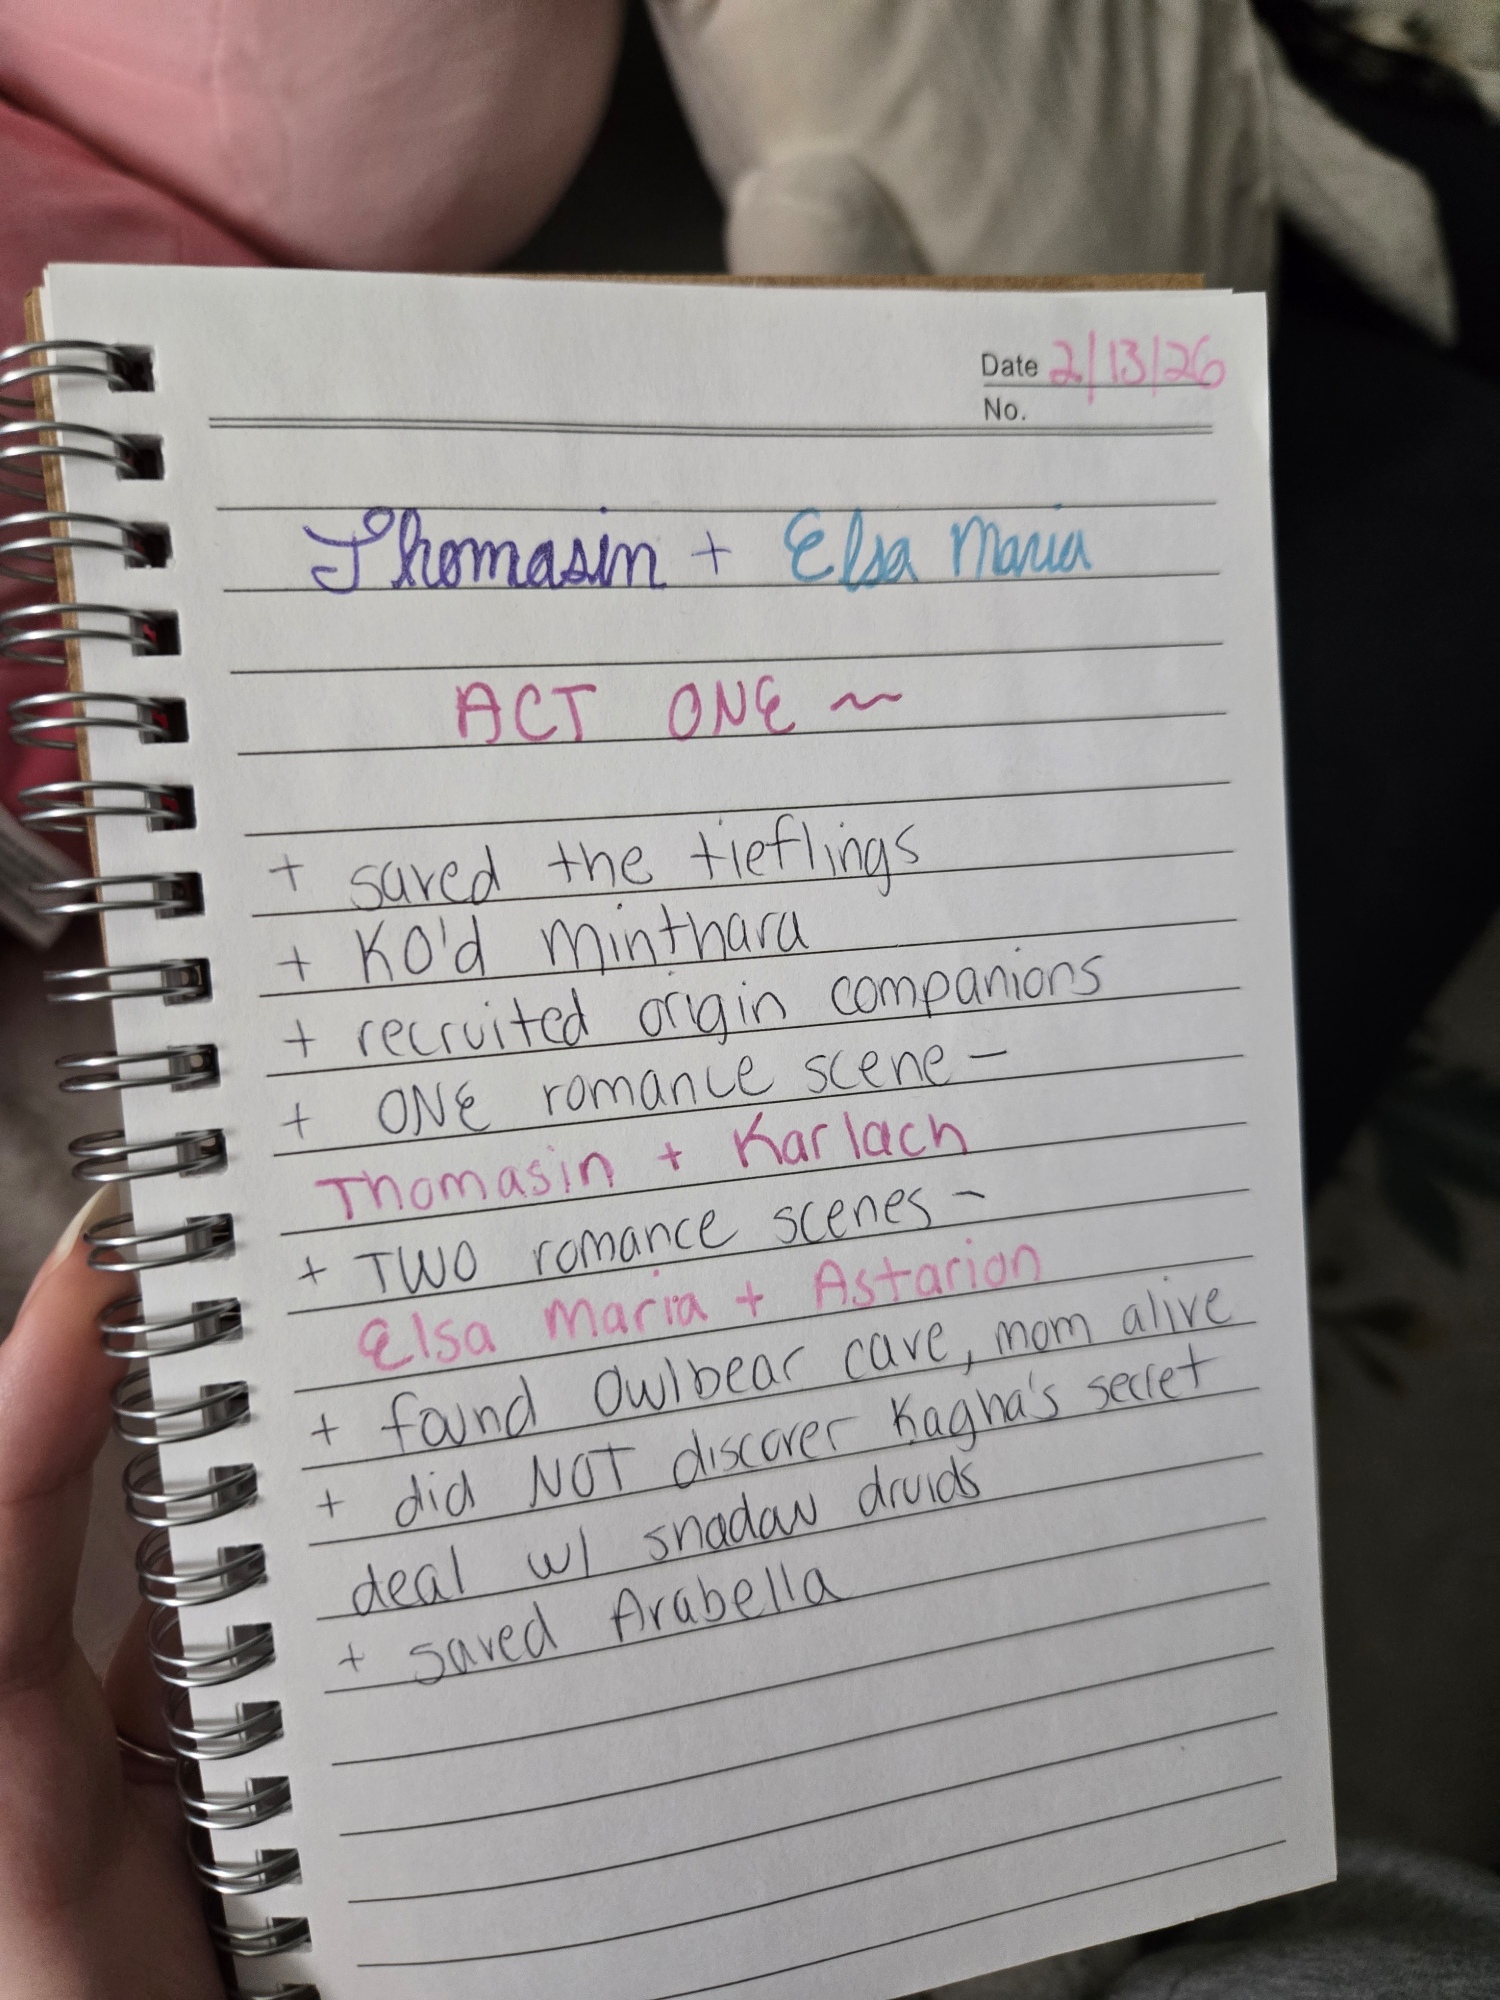 Date 2/13/26
No.
Thomasin + Elsa Maria
ACT ONE ~
+ saved the tieflings
+ KO'd Minthara
+ recruited origin companions
+ ONE romance scene -
Thomasin + Karlach
+ TWO romance scenes -
Elsa Maria + Astarion
+ found Owlbear cave, mom alive
+ did NOT discover Kagha's secret
deal w/ shadow druids
+ saved Arabella